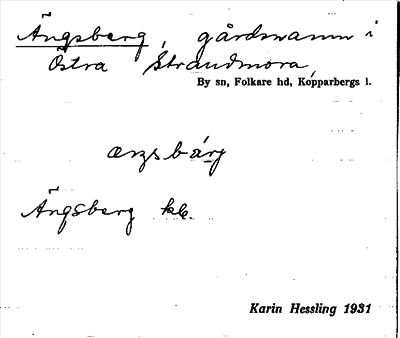 Ängsberg, gårdsnamn i
Östra Strandmora
By sn, Folkare hd, Kopparbergs l.
ängsbärj
Ängsberg kb.
Karin Hessling 1931